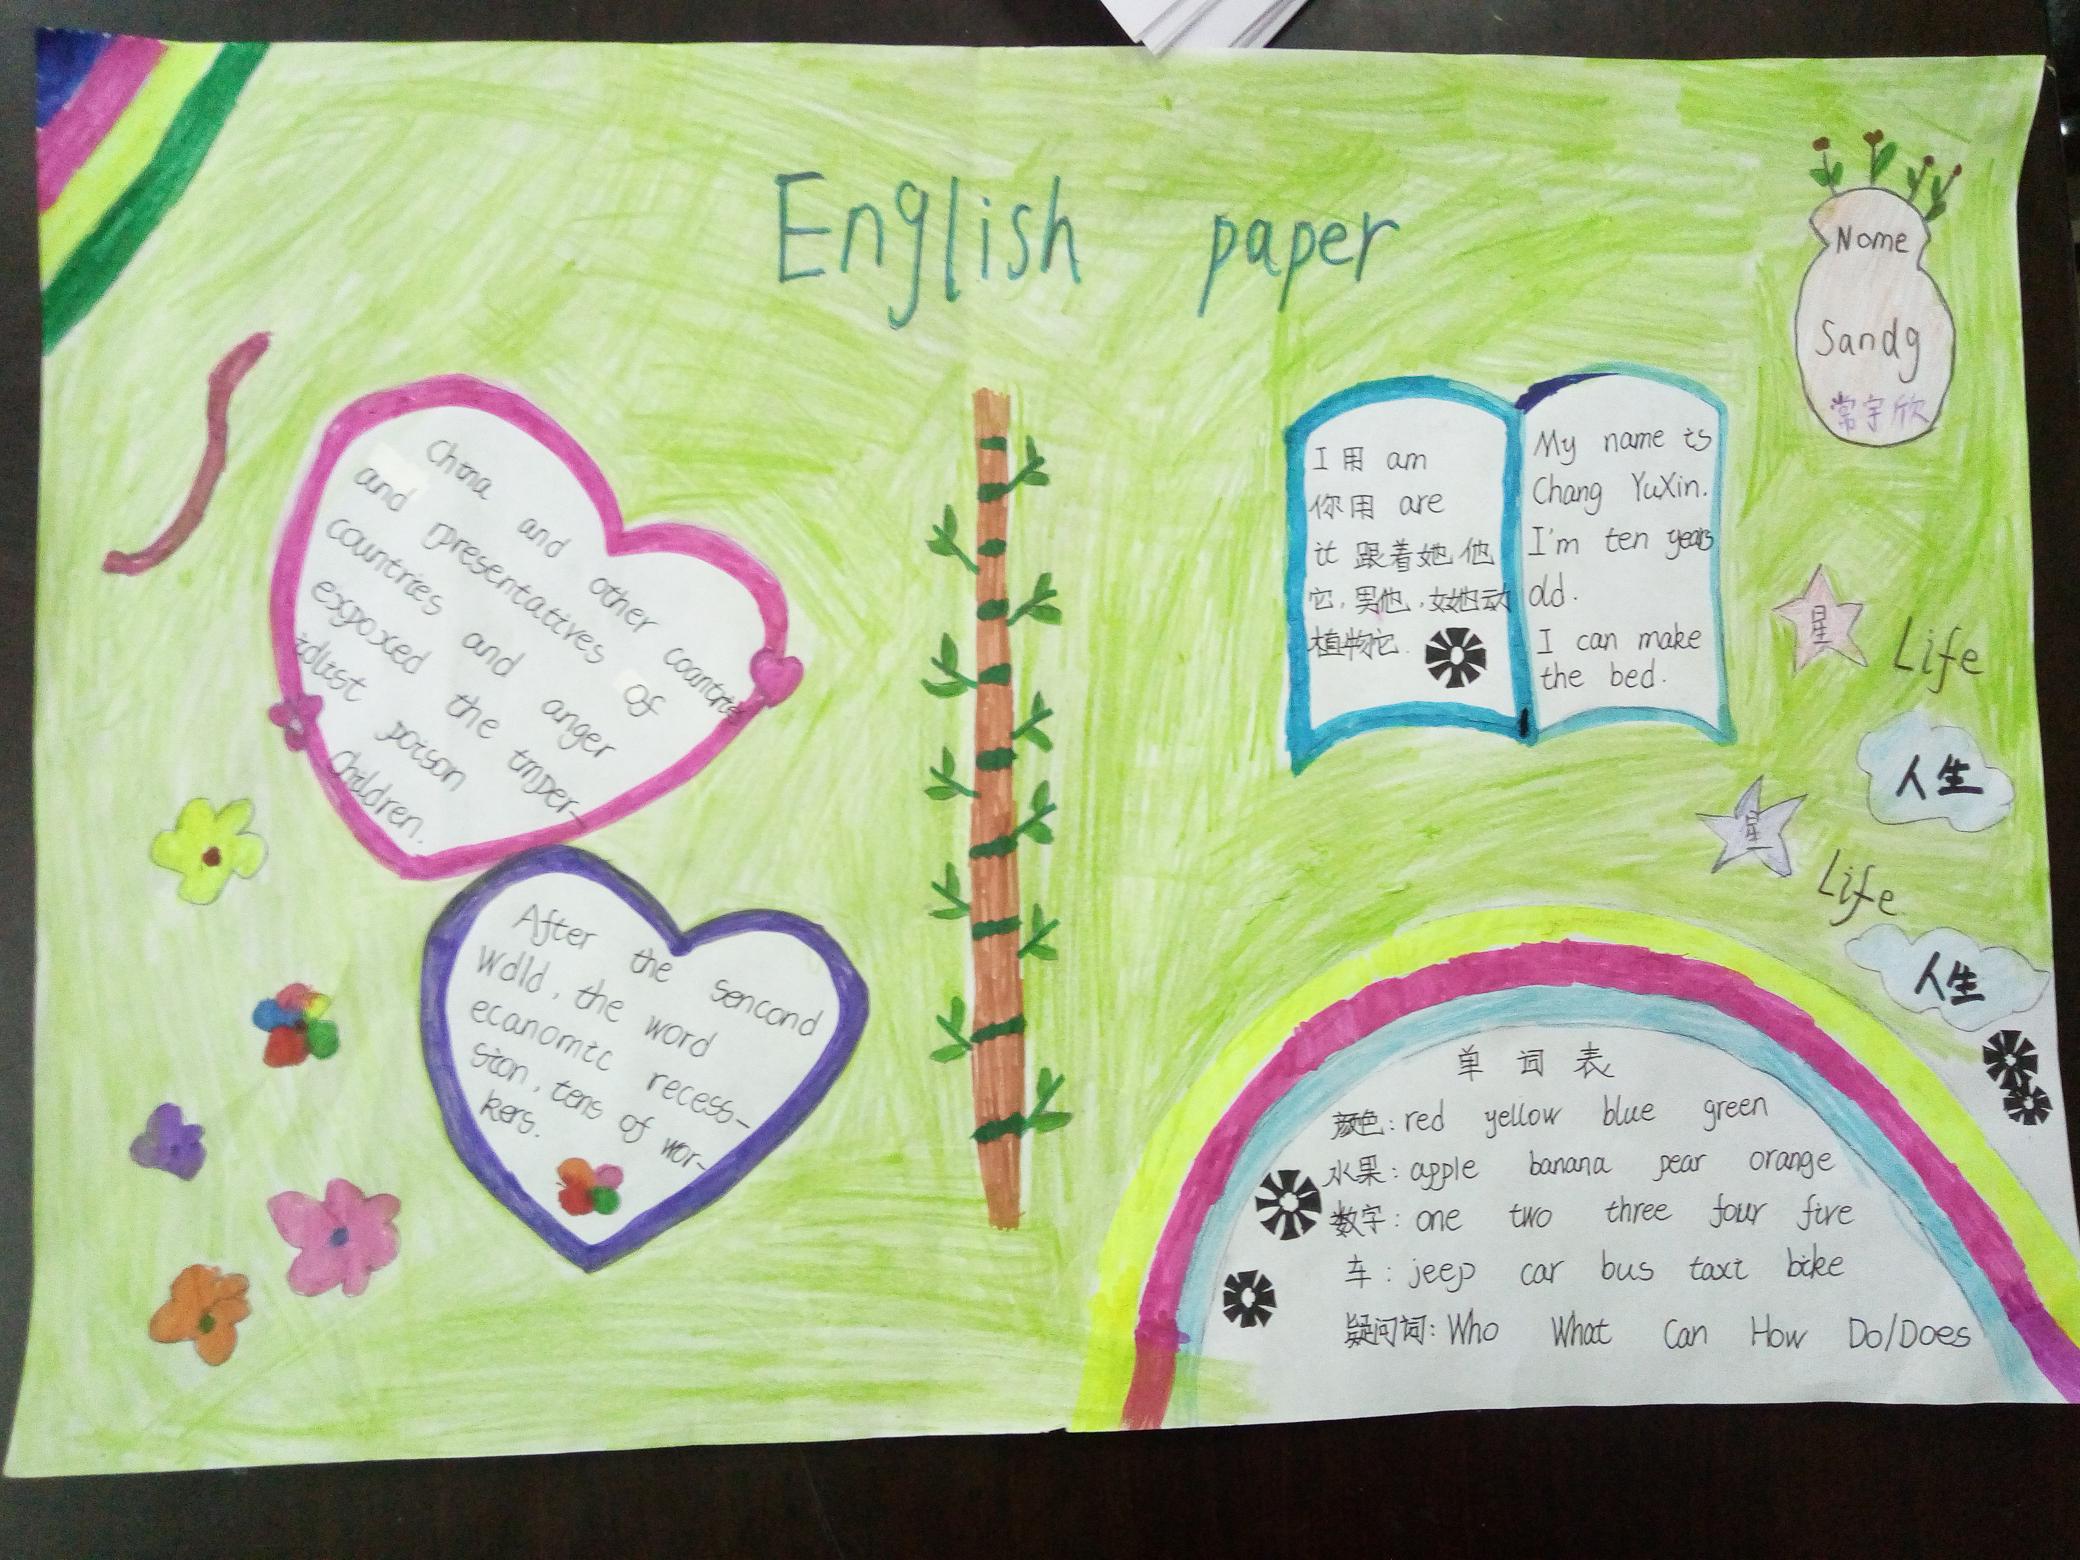 English paper
Nome
Sandg
常宇欣
China and other countries
and rpresentatives of
countries and anger
exgoxed the imper-
idlist poison
Children.
After the sencond
Wdld, the word
ecanomic recess-
sion, tens of wor-
kers.
I 用 am
你用 are
it 跟着她他
它,男他,女她动
植物它.
My name is
Chang YuXin.
I'm ten years
old.
I can make
the bed.
星
Life
人生
星
Life
人生
单词表
颜色: red yellow blue green
水果: apple banana pear orange
数字: one two three four five
车: jeep car bus taxi bike
疑问词: Who What Can How Do/Does